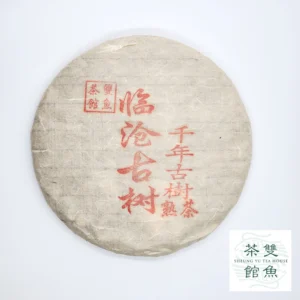 雙魚
茶館
临沧古树
千年古樹熟茶
雙魚
茶館
SHUANG YU TEA HOUSE